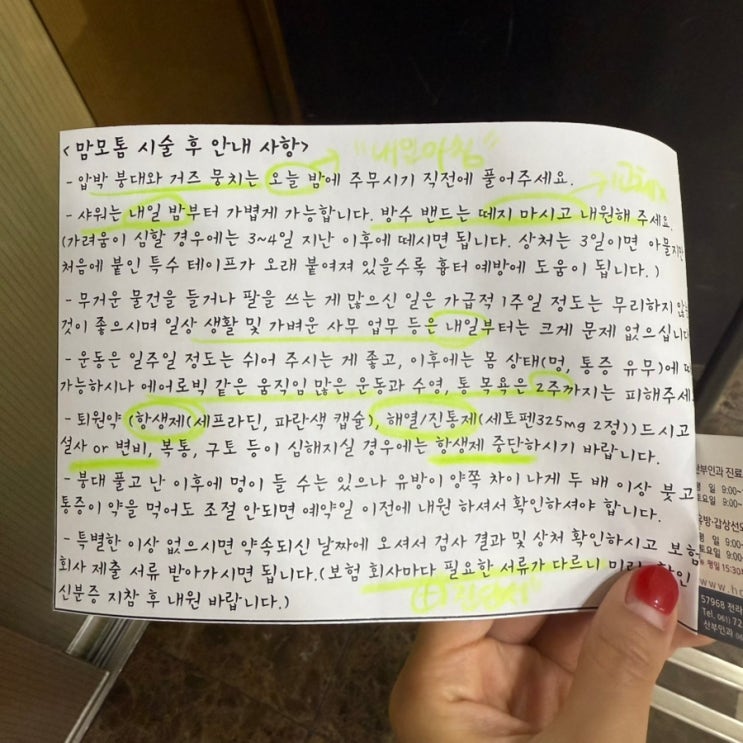 < 맘모톰 시술 후 안내 사항>
"내일아침"
- 압박 붕대와 거즈 뭉치는 오늘 밤에 주무시기 직전에 풀어주세요.
- 샤워는 내일 밤부터 가볍게 가능합니다. 방수 밴드는 떼지 마시고 내원해 주세요.
(가려움이 심할 경우에는 3~4일 지난 이후에 떼시면 됩니다. 상처는 3일이면 아물지만
처음에 붙인 특수 테이프가 오래 붙여져 있을수록 흉터 예방에 도움이 됩니다. )
- 무거운 물건을 들거나 팔을 쓰는 게 많으신 일은 가급적 1주일 정도는 무리하지 않는
것이 좋으시며 일상 생활 및 가벼운 사무 업무 등은 내일부터는 크게 문제 없으십니다
- 운동은 일주일 정도는 쉬어 주시는 게 좋고, 이후에는 몸 상태(멍, 통증 유무)에 따
가능하시나 에어로빅 같은 움직임 많은 운동과 수영, 통 목욕은 2주까지는 피해주세
- 퇴원약 (항생제(세프라딘, 파란색 캡슐), 해열/진통제(세토펜325mg 2정))드시고
설사 or 변비, 복통, 구토 등이 심해지실 경우에는 항생제 중단하시기 바랍니다.
- 붕대 풀고 난 이후에 멍이 들 수는 있으나 유방이 양쪽 차이 나게 두 배 이상 붓고
통증이 약을 먹어도 조절 안되면 예약일 이전에 내원 하셔서 확인하셔야 합니다.
- 특별한 이상 없으시면 약속되신 날짜에 오셔서 검사 결과 및 상처 확인하시고 보험
회사 제출 서류 받아가시면 됩니다.(보험 회사마다 필요한 서류가 다르니 미리 확인
신분증 지참 후 내원 바랍니다.)
산부인과 진료
평 일 9:00~
토요일 9:00~
유방·갑상선외
평 일 9:00~
토요일 9:00~
평일 15:30
www.hr
57968 전라
Tel. 061) 72
산부인과 06